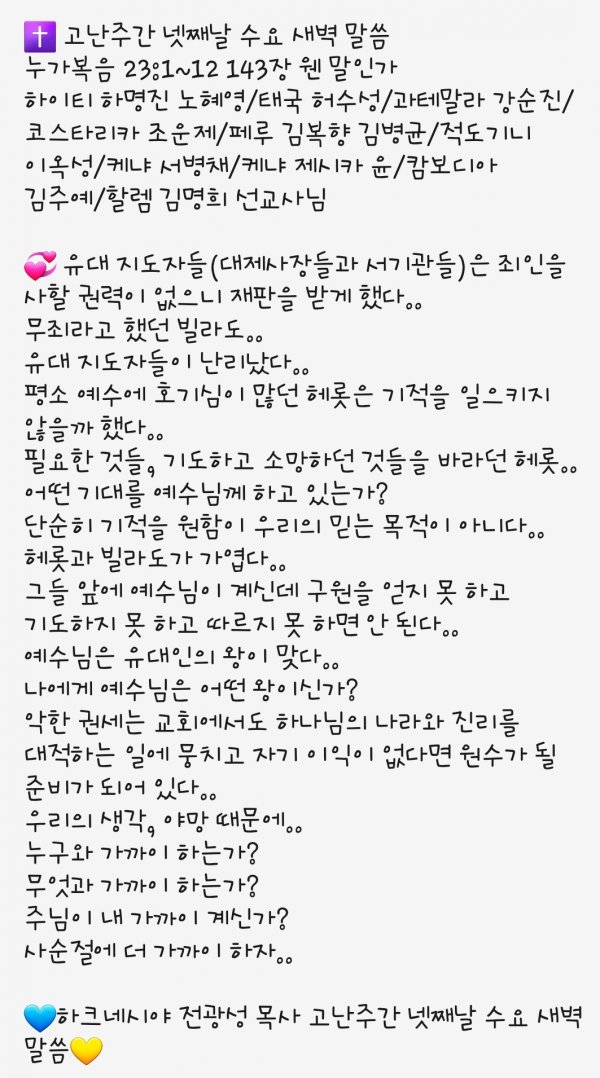 ✝️ 고난주간 넷째날 수요 새벽 말씀
누가복음 23:1~12 143장 웬 말인가
하이티 하명진 노혜영/태국 허수성/과테말라 강순진/
코스타리카 조운제/페루 김복향 김병균/적도기니
이옥성/케냐 서병채/케냐 제시카 윤/캄보디아
김주예/할렘 김명희 선교사님

💞 유대 지도자들(대제사장들과 서기관들)은 죄인을
사할 권력이 없으니 재판을 받게 했다..
무죄라고 했던 빌라도..
유대 지도자들이 난리났다..
평소 예수에 호기심이 많던 헤롯은 기적을 일으키지
않을까 했다..
필요한 것들, 기도하고 소망하던 것들을 바라던 헤롯..
어떤 기대를 예수님께 하고 있는가?
단순히 기적을 원함이 우리의 믿는 목적이 아니다..
헤롯과 빌라도가 가엽다..
그들 앞에 예수님이 계신데 구원을 얻지 못 하고
기도하지 못 하고 따르지 못 하면 안 된다..
예수님은 유대인의 왕이 맞다..
나에게 예수님은 어떤 왕이신가?
악한 권세는 교회에서도 하나님의 나라와 진리를
대적하는 일에 뭉치고 자기 이익이 없다면 원수가 될
준비가 되어 있다..
우리의 생각, 야망 때문에..
누구와 가까이 하는가?
무엇과 가까이 하는가?
주님이 내 가까이 계신가?
사순절에 더 가까이 하자..

💙하크네시야 전광성 목사 고난주간 넷째날 수요 새벽
말씀💛